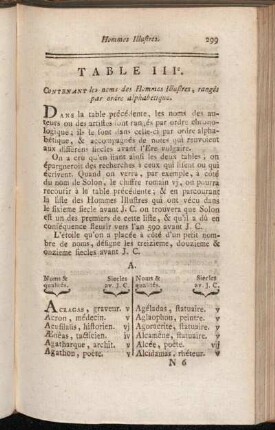 Hommes Illustres. 299
TABLE IIIe.
CONTENANT les noms des Hommes Illustres, rangés
par ordre alphabétique.
DANS la table précédente, les noms des au-
teurs ou des artistes sont rangés par ordre chrono-
logique; ils le sont dans celle-ci par ordre alpha-
bétique, & accompagnés de notes qui renvoient
aux différens siecles avant l'Ere vulgaire.
On a cru qu'en liant ainsi les deux tables, on
épargneroit des recherches à ceux qui lisent ou qui
écrivent. Quand on verra, par exemple, à
côté du nom de Solon, le chiffre romain vj, on pourra
recourir à la table précédente; & en parcourant
la liste des Hommes Illustres qui ont vécu dans
le sixieme siecle avant J. C. on trouvera que Solon
est un des premiers de cette liste, & qu'il a dû en
conséquence fleurir vers l'an 590 avant J. C.
L'étoile qu'on a placée à côté d'un petit nom-
bre de noms, désigne les treizieme, douzieme &
onzieme siecles avant J. C.
A.
Noms & Siecles Noms & Siecles
qualités. av. J. C. qualités. av. J. C.
ACRAGAS, graveur. v Agéladas, statuaire. v
Acron, médecin. v Aglaophon, peintre. v
Acusilaüs, historien. vj Agoracrite, statuaire. v
Ænéas, tacticien. iv Alcamene, statuaire. v
Agatharque, archit. v Alcée, poëte. vij
Agathon, poëte. v Alcidamas, rhéteur. v
N 6